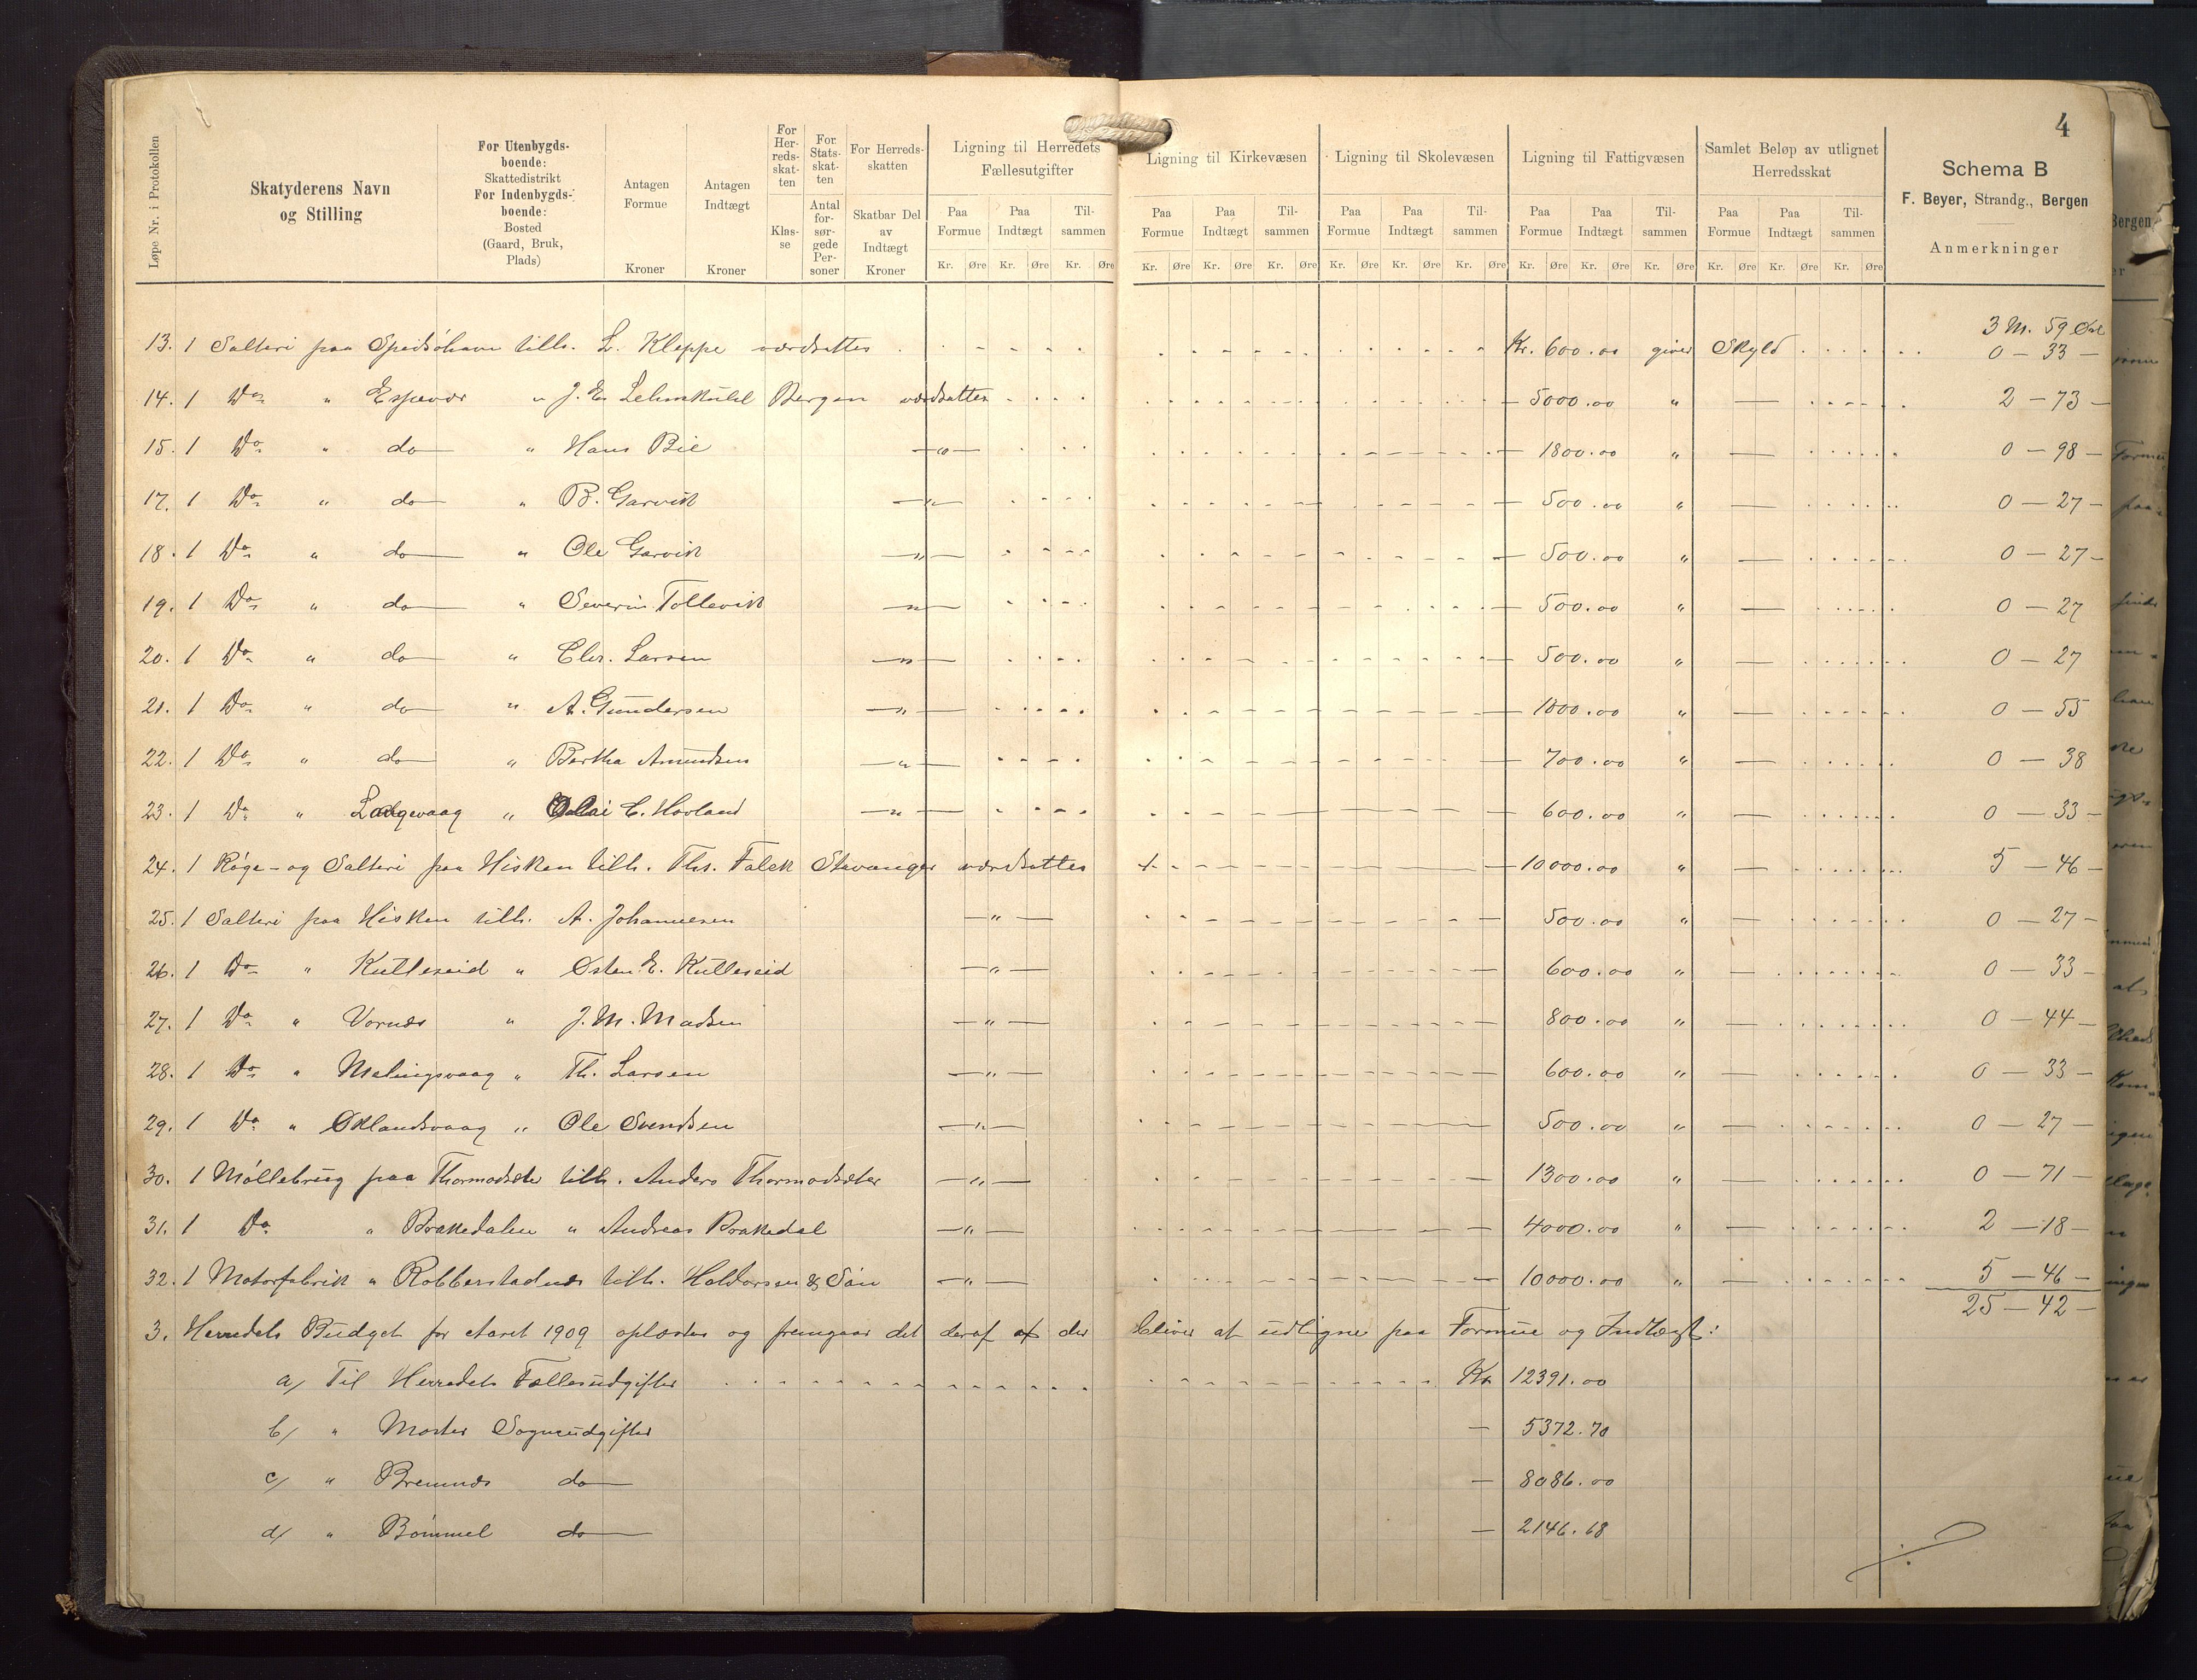 4
Løpe Nr. i Protokollen
Skatyderens Navn og Stilling
For Utenbygds-boende: Skattedistrikt For Indenbygds-boende: Bosted (Gaard, Bruk, Plads)
Antagen Formue Kroner
Antagen Indtægt Kroner
For Herreds-skatten Klasse
For Stats-skatten Antal forsørgede Personer
For Herreds-skatten Skatbar Del av Indtægt Kroner
Ligning til Herredets Fællesutgifter
Ligning til Kirkevæsen
Ligning til Skolevæsen
Ligning til Fattigvæsen
Samlet Beløp av utlignet Herredsskat
Paa Formue Paa Indtægt Tilsammen Paa Formue Paa Indtægt Tilsammen Paa Formue Paa Indtægt Tilsammen Paa Formue Paa Indtægt Tilsammen Paa Formue Paa Indtægt Tilsammen
Kr. Øre Kr. Øre Kr. Øre Kr. Øre Kr. Øre Kr. Øre Kr. Øre Kr. Øre Kr. Øre Kr. Øre Kr. Øre Kr. Øre Kr. Øre Kr. Øre Kr. Øre
Schema B
F. Beyer, Strandg., Bergen
Anmerkninger
3 M. 59 Øre
13. 1 Salteri paa Speidsöhavn tilh. L. Kleppe værdsattes Kr. 600.00 giver Skyld 0 – 33 –
14. 1 Do " Espevær " J. E. Lehmkuhl Bergen værdsattes – 5000.00 " — 2 – 73 –
15. 1 Do " do " Hans Bie — " — 1800.00 " — 0 – 98 –
17. 1 Do " do " B. Garvik — " — 500.00 " — 0 – 27 –
18. 1 Do " do " Ole Garvik — " — 500.00 " — 0 – 27 –
19. 1 Do " do " Severin Tollevik — " — 500.00 " — 0 – 27
20. 1 Do " do " Chr. Larsen — " — 500.00 " — 0 – 27
21. 1 Do " do " A. Gundersen — " — 1000.00 " — 0 – 55
22. 1 Do " do " Bertha Amundsen — " — 700.00 " — 0 – 38
23. 1 Do " Langevaag " Olai C. Hovland — " — 600.00 " — 0 – 33 –
24. 1 Røge- og Salteri paa Hisken tilh. Ths. Falck Stavanger værdsattes – 10000.00 " — 5 – 46 –
25. 1 Salteri paa Hisken tilh. A. Johannesen — " — 500.00 " — 0 – 27 –
26. 1 Do " Kulleseid " Østen E. Kulleseid — " — 600.00 " — 0 – 33 –
27. 1 Do " Vornæs " J. M. Madsen — " — 800.00 " — 0 – 44 –
28. 1 Do " Melingsvaag " Th. Larsen — " — 600.00 " — 0 – 33 –
29. 1 Do " Øklandsvaag " Ole Svendsen — " — 500.00 " — 0 – 27 –
30. 1 Møllebrug paa Thormodsæter tilh. Anders Thormodsæter — " — 1300.00 " — 0 – 71 –
31. 1 Do " Brakedalen " Andreas Brakedal — " — 4000.00 " — 2 – 18 –
32. 1 Motorfabrik " Robberstadnæs tilh. Haldorsen & Søn — " — 10000.00 " — 5 – 46 –
25 – 42 –
3. Herredets Budget for Aaret 1909 oplæstes og fremgaar det deraf at der bliver at udligne paa Formue og Indtægt:
a/ Til Herredets Fællesudgifter Kr 12391.00
b/ " Moster Sogneudgifter – 5372.70
c/ " Bremnæs do – 8086.00
d/ " Bømmel do – 2146.68